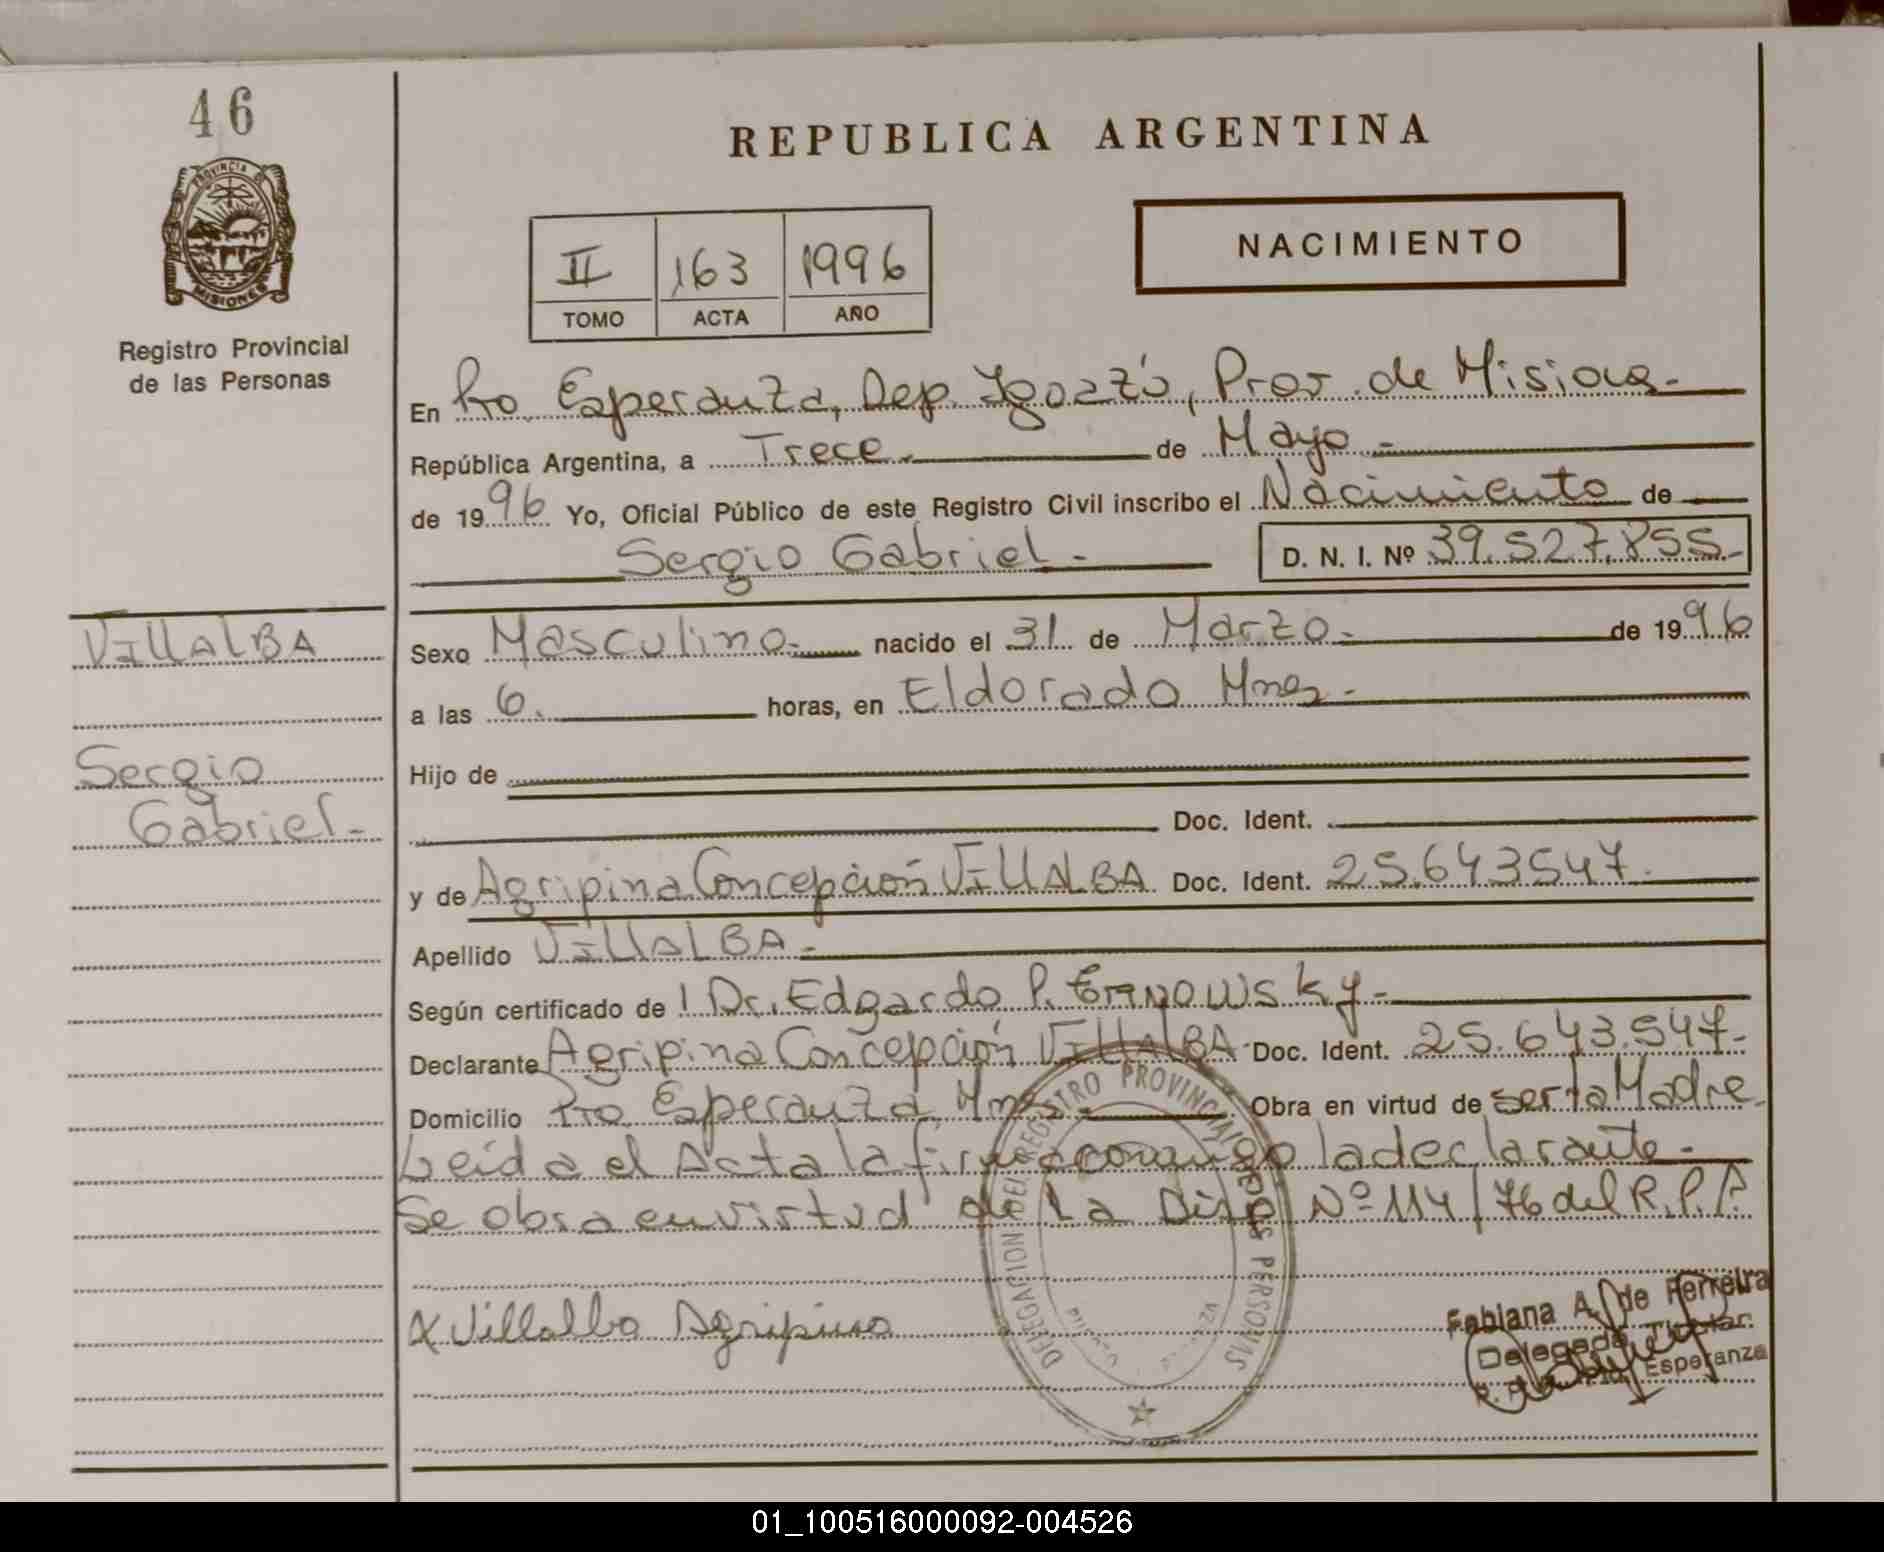 46
PROVINCIA DE
MISIONES
Registro Provincial
de las Personas
REPUBLICA ARGENTINA
NACIMIENTO
II 163 1996
TOMO ACTA AÑO
En Pto. Esperanza, Dep. Iguazú, Prov. de Misiones-
República Argentina, a Trece. de Mayo-
de 1996 Yo, Oficial Público de este Registro Civil inscribo el Nacimiento de
Sergio Gabriel- D. N. I. Nº 39.527.855-
VILLALBA
Sergio
Gabriel-
Sexo Masculino- nacido el 31 de Marzo- de 1996
a las 6. horas, en Eldorado Mnes-
Hijo de
Doc. Ident.
y de Agripina Concepción VILLALBA Doc. Ident. 25.643547.
Apellido VILLALBA-
Según certificado de Dr. Edgardo P.
Declarante Agripina Concepción VILLALBA Doc. Ident. 25.643.547-
Domicilio Pto. Esperanza Mnes- Obra en virtud de ser la Madre.
Leída el Acta la firma conmigo la declarante-
Se obra en virtud de La Disp Nº 114/76 del R.P.P.
DELEGACION DEL REGISTRO PROVINCIAL DE LAS PERSONAS
X Villalba Agripina
Fabiana A. de Ferreira
Delegada Titular
Esperanza
01_100516000092-004526